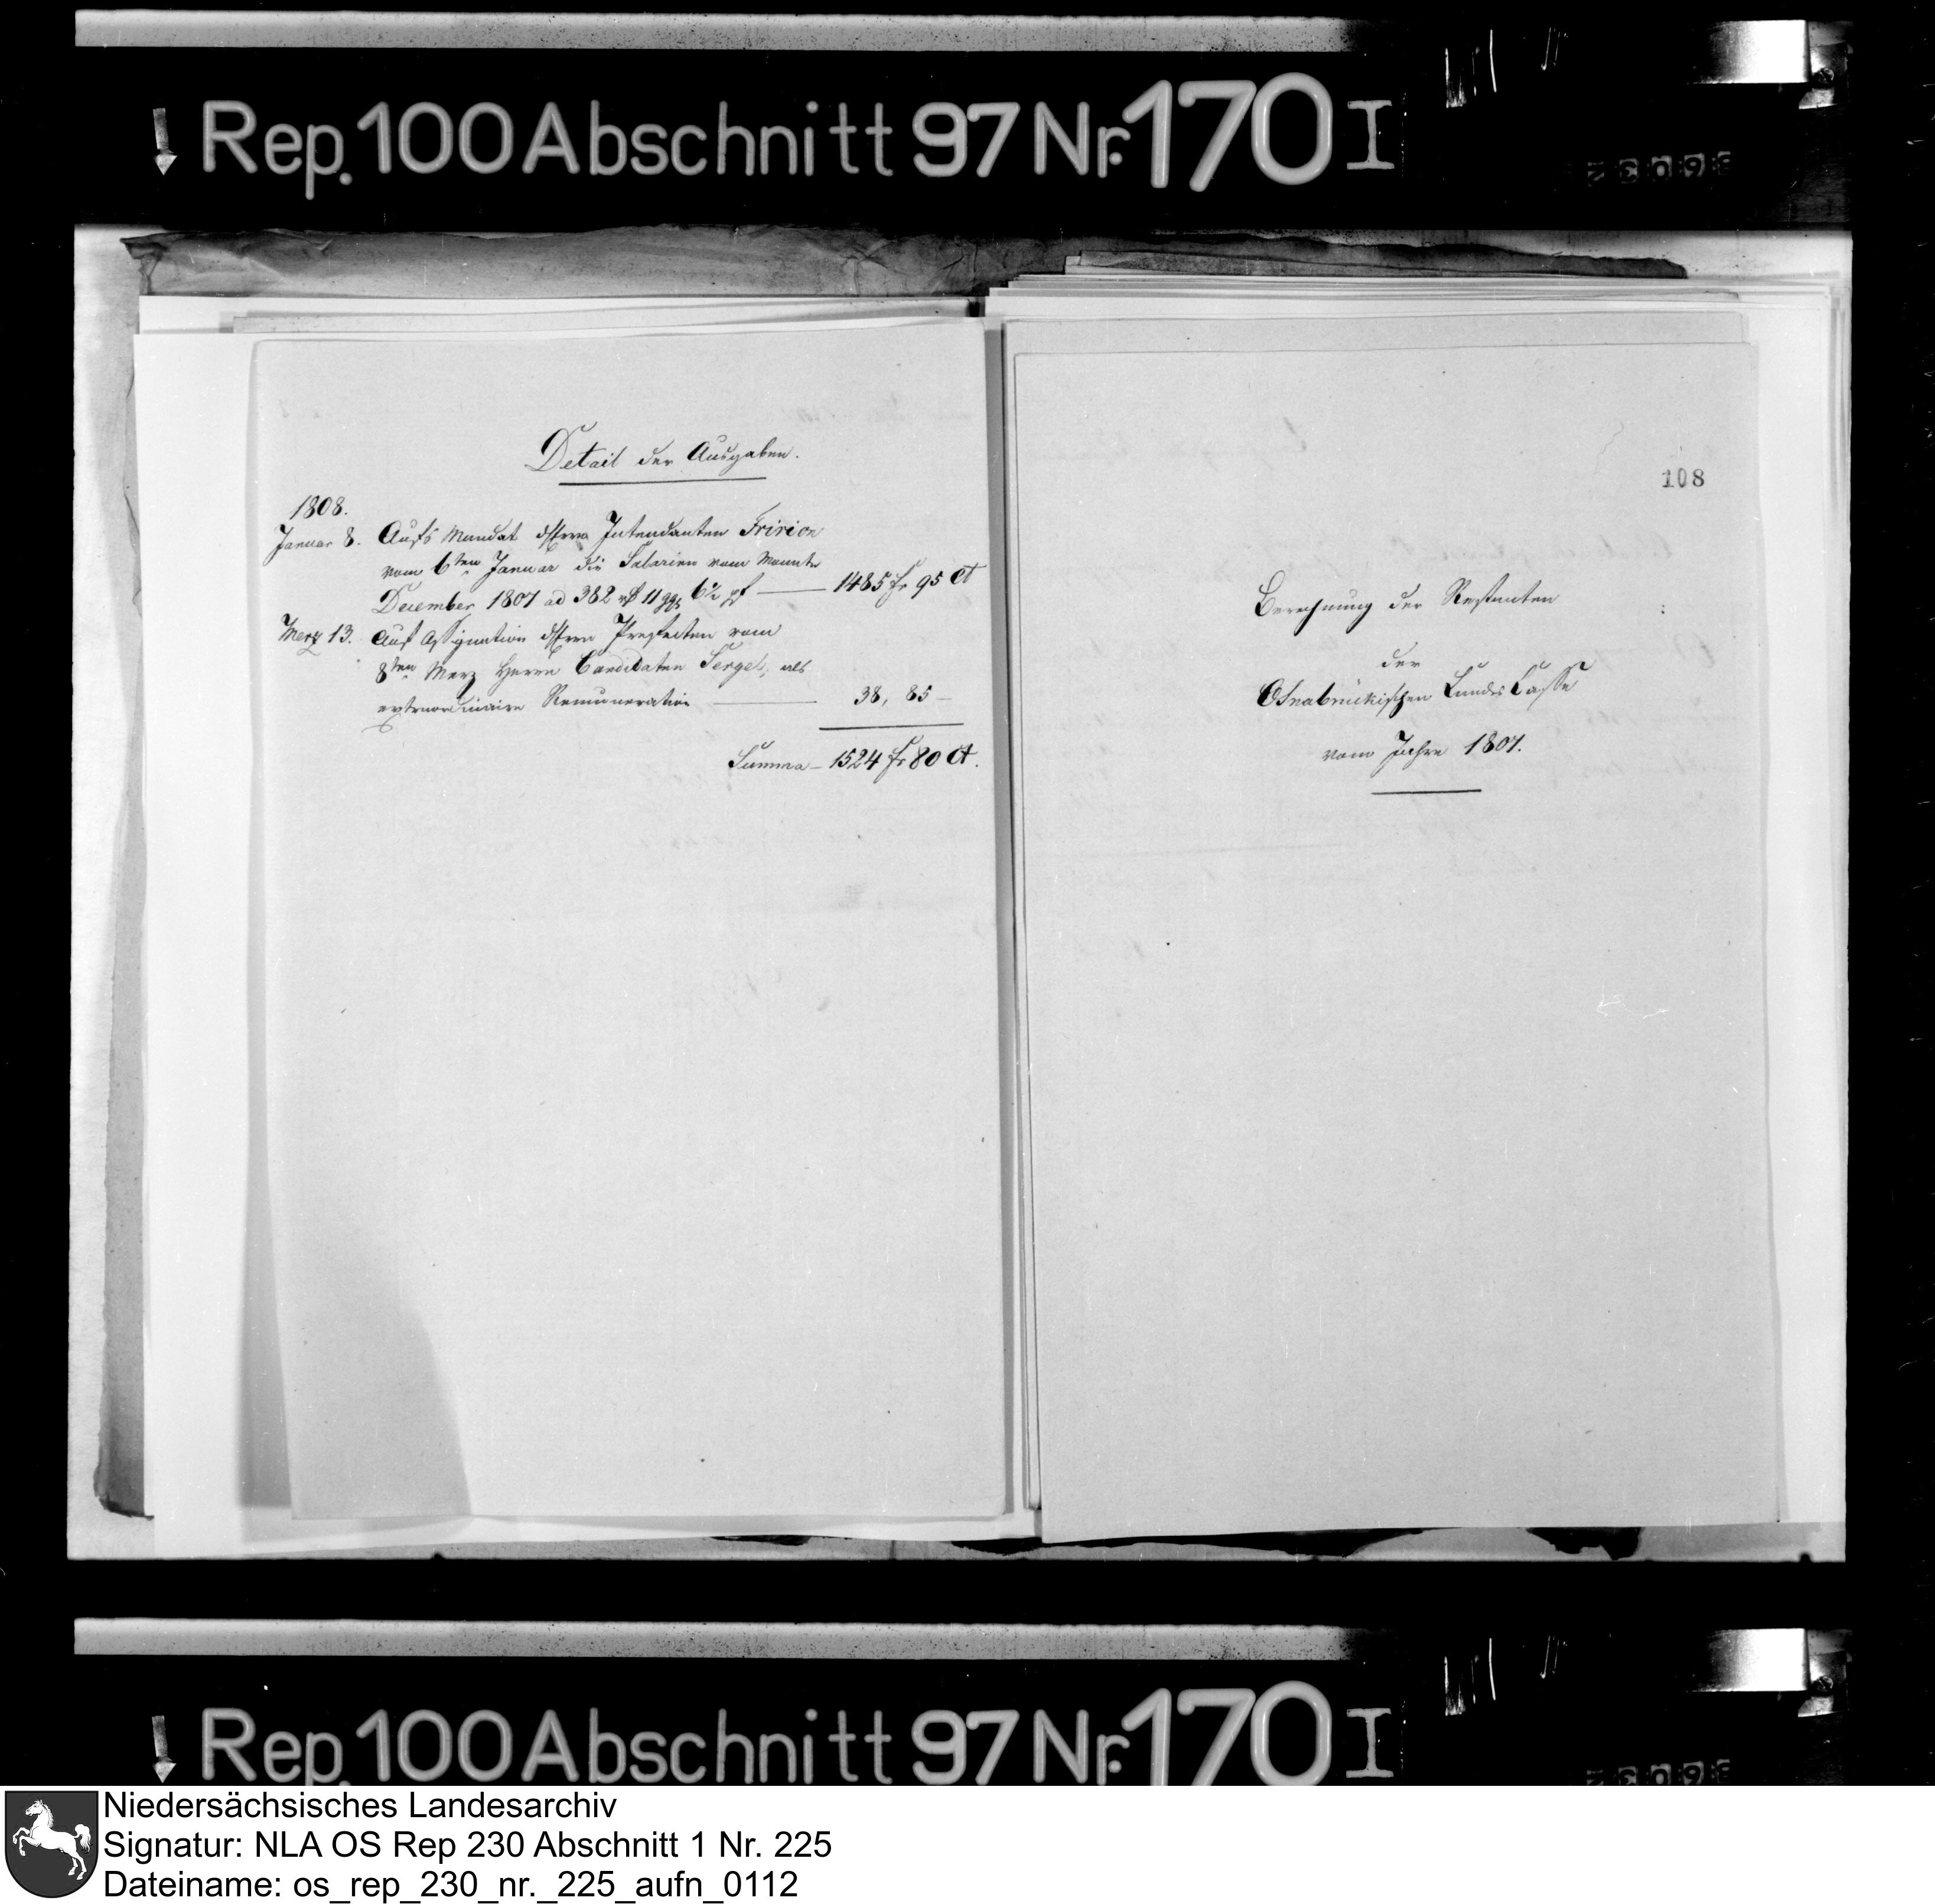 Rep. 100 Abschnitt 97 Nr. 170 I
Detail der Ausgaben.
1808.
Januar 8. Aufs Mandat des Herrn Intendanten Fririon
vom 6ten Januar die Salarien vom Monate
December 1807 ad 382 rt 11 ggr 6½ pf — 1485 fr 95 Ct
Merz 13. Auf Assignation des Herrn Prefecten vom
8ten Merz Herrn Candidaten Sergel, als
extraordinaire Remuneration — 38, 85 —
Summa — 1524 fr 80 Ct.
108
Berechnung der Restanten
der
Osnabrückischen Landes Casse
vom Jahre 1807.
Rep. 100 Abschnitt 97 Nr. 170 I
Niedersächsisches Landesarchiv
Signatur: NLA OS Rep 230 Abschnitt 1 Nr. 225
Dateiname: os_rep_230_nr._225_aufn_0112